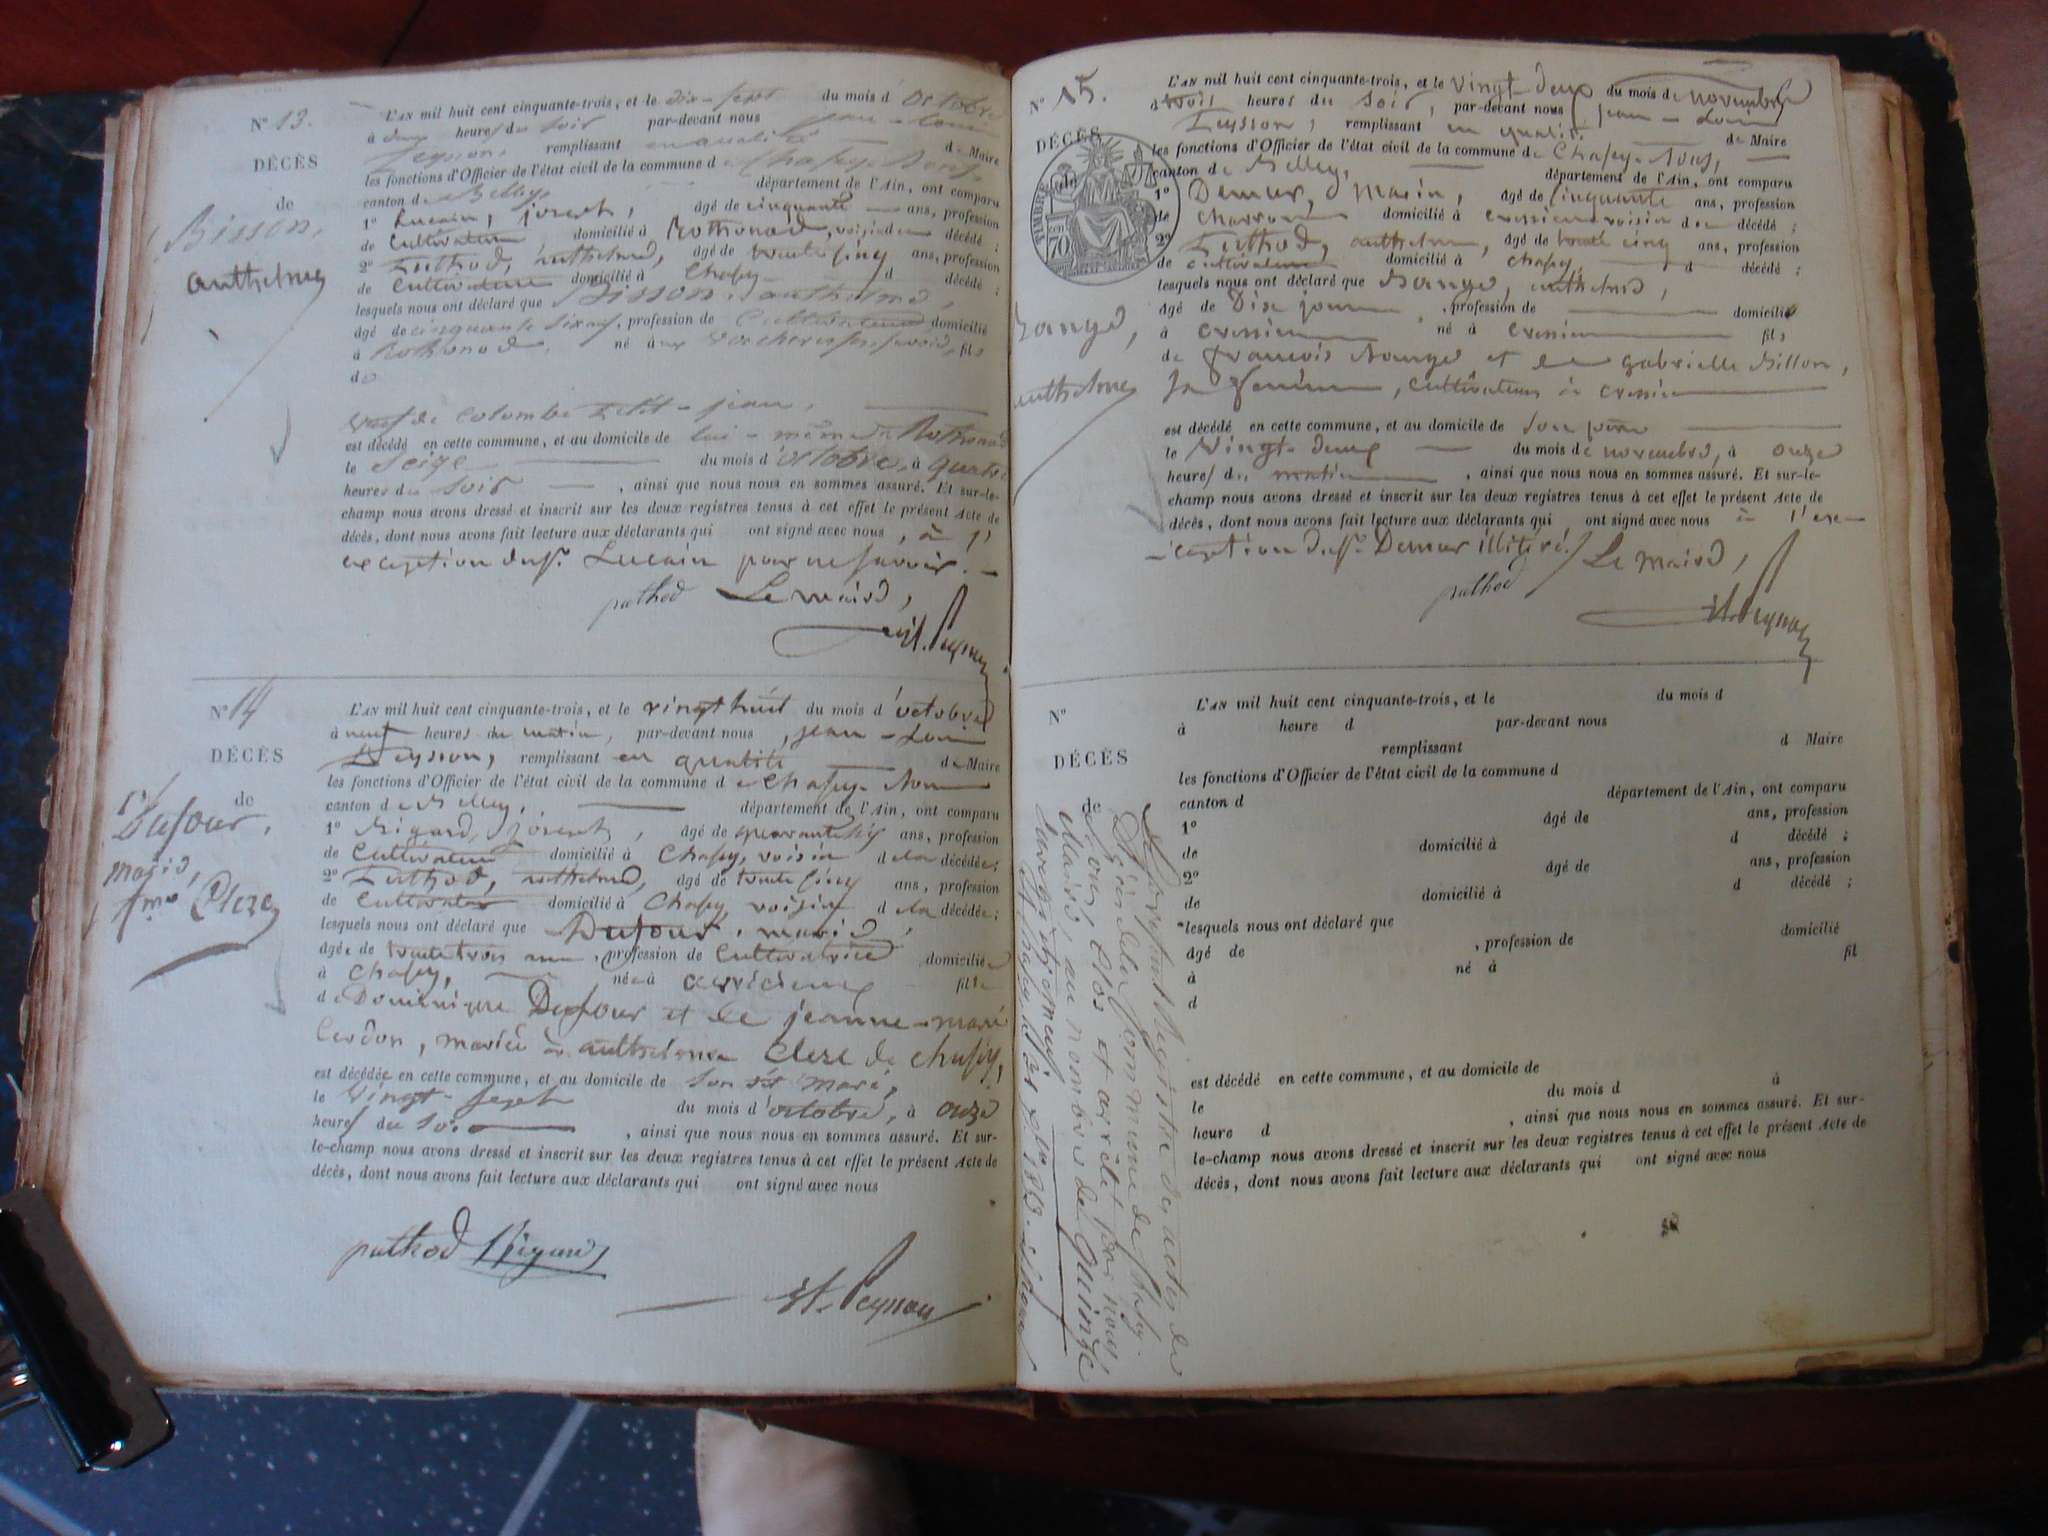 N° 13.
DÉCÈS
de
Bisson,
anthelme
L'AN mil huit cent cinquante-trois, et le dix-sept du mois d'octobre
à deux heures du soir par-devant nous jean-Louis
remplissant en qualité de Maire
les fonctions d'Officier de l'état civil de la commune de
canton de Belley, département de l'Ain, ont comparu
1° Lucain, joseph, âgé de cinquante ans, profession
de Cultivateur domicilié à Rothonod, voisin du décédé ;
2° anthelme, âgé de trente cinq ans, profession
de Cultivateur domicilié à Chasey d décédé ;
lesquels nous ont déclaré que Bisson, anthelme,
âgé de cinquante six, profession de Cultivateur domicilié
à Rothonod, né fils
de
veuf de colombe petit-jean,
est décédé en cette commune, et au domicile de lui-même à Rothonod
le Seize du mois d'octobre, à quatre
heures du soir, ainsi que nous nous en sommes assuré. Et sur-le-
champ nous avons dressé et inscrit sur les deux registres tenus à cet effet le présent Acte de
décès, dont nous avons fait lecture aux déclarants qui ont signé avec nous, à l'
exception du sr. Lucain pour ne savoir.
puthod Le maire,
N° 14
DÉCÈS
de
Dufour,
marie,
fme Clerc
L'AN mil huit cent cinquante-trois, et le vingt huit du mois d'octobre
à neuf heures du matin, par-devant nous, jean-Louis
remplissant en qualité de Maire
les fonctions d'Officier de l'état civil de la commune de
canton de Belley, département de l'Ain, ont comparu
1° Rigard, joseph, âgé de quarante six ans, profession
de Cultivateur domicilié à Chasey, voisin de la décédée ;
2° anthelme, âgé de trente cinq ans, profession
de Cultivateur domicilié à Chasey, voisin de la décédée ;
lesquels nous ont déclaré que Dufour, marie,
âgée de trente trois ans, profession de Cultivatrice domiciliée
à Chasey, née à fille
de Dominique Dufour et de jeanne-marie
Cerdon, mariée à anthelme Clerc de chasey,
est décédée en cette commune, et au domicile de son dit mari,
le Vingt-sept du mois d'octobre, à onze
heures du soir, ainsi que nous nous en sommes assuré. Et sur-
le-champ nous avons dressé et inscrit sur les deux registres tenus à cet effet le présent Acte de
décès, dont nous avons fait lecture aux déclarants qui ont signé avec nous
puthod Rigard
N° 15.
DÉCÈS
TIMBRE
70
de
anthelme
L'AN mil huit cent cinquante-trois, et le vingt-deux du mois de novembre
à trois heures du soir, par-devant nous jean-Louis
remplissant en qualité de Maire
les fonctions d'Officier de l'état civil de la commune de
canton de Belley, département de l'Ain, ont comparu
1° Demur, Marin, âgé de cinquante ans, profession
de Charron domicilié à cressieu voisin du décédé ;
2° anthelme, âgé de trente cinq ans, profession
de cultivateur domicilié à chasey, d décédé ;
lesquels nous ont déclaré que anthelme,
âgé de Dix jours, profession de domicilié
à cressieu né à cressieu fils
de françois et de gabrielle Billon,
sa femme, cultivateurs à cressieu
est décédé en cette commune, et au domicile de son père
le Vingt-deux du mois de novembre, à onze
heures du matin, ainsi que nous nous en sommes assuré. Et sur-le-
champ nous avons dressé et inscrit sur les deux registres tenus à cet effet le présent Acte de
décès, dont nous avons fait lecture aux déclarants qui ont signé avec nous à l'ex-
-ception du sr. Demur illitéré. Le maire,
puthod
N°
DÉCÈS
de
Le présent Registre des actes de
Décès de la commune de Chasey-
Bons, clos et arrêté par nous
Maire, au nombre de Quinze
L'AN mil huit cent cinquante-trois, et le du mois d
à heure d par-devant nous
remplissant d Maire
les fonctions d'Officier de l'état civil de la commune d
canton d département de l'Ain, ont comparu
1° âgé de ans, profession
de domicilié à d décédé ;
2° âgé de ans, profession
de domicilié à d décédé ;
lesquels nous ont déclaré que
âgé de , profession de domicilié
à né à fil
d
est décédé en cette commune, et au domicile de
le du mois d à
heure d , ainsi que nous nous en sommes assuré. Et sur-
le-champ nous avons dressé et inscrit sur les deux registres tenus à cet effet le présent Acte de
décès, dont nous avons fait lecture aux déclarants qui ont signé avec nous